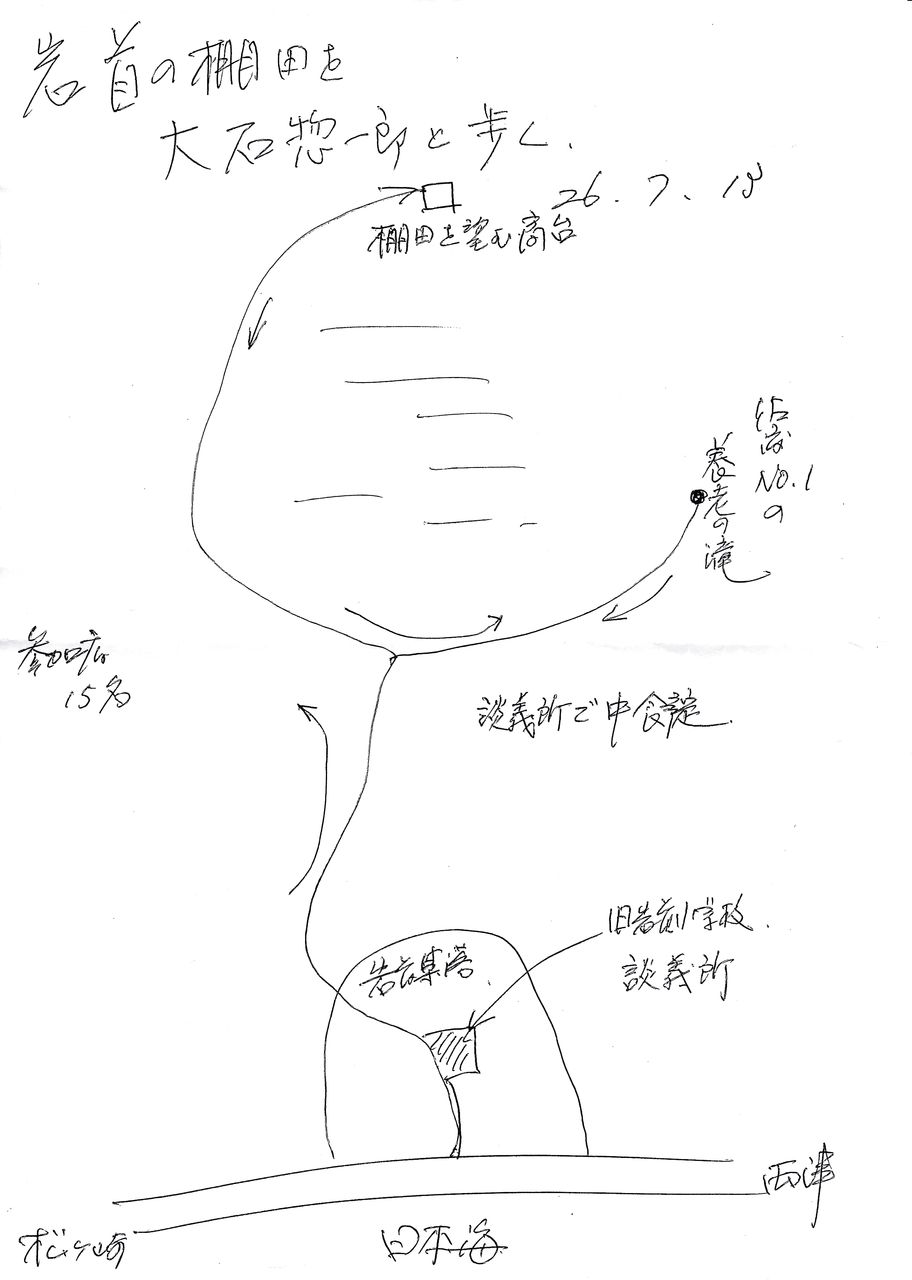 岩首の棚田を
大石惣一郎と歩く.
26.7.18
棚田を望む高台
佐渡NO.1の
養老の滝
参加者
15名
談義所で中食
旧岩首小学校.
談義所
岩首集落.
両津
松ヶ崎
日本海